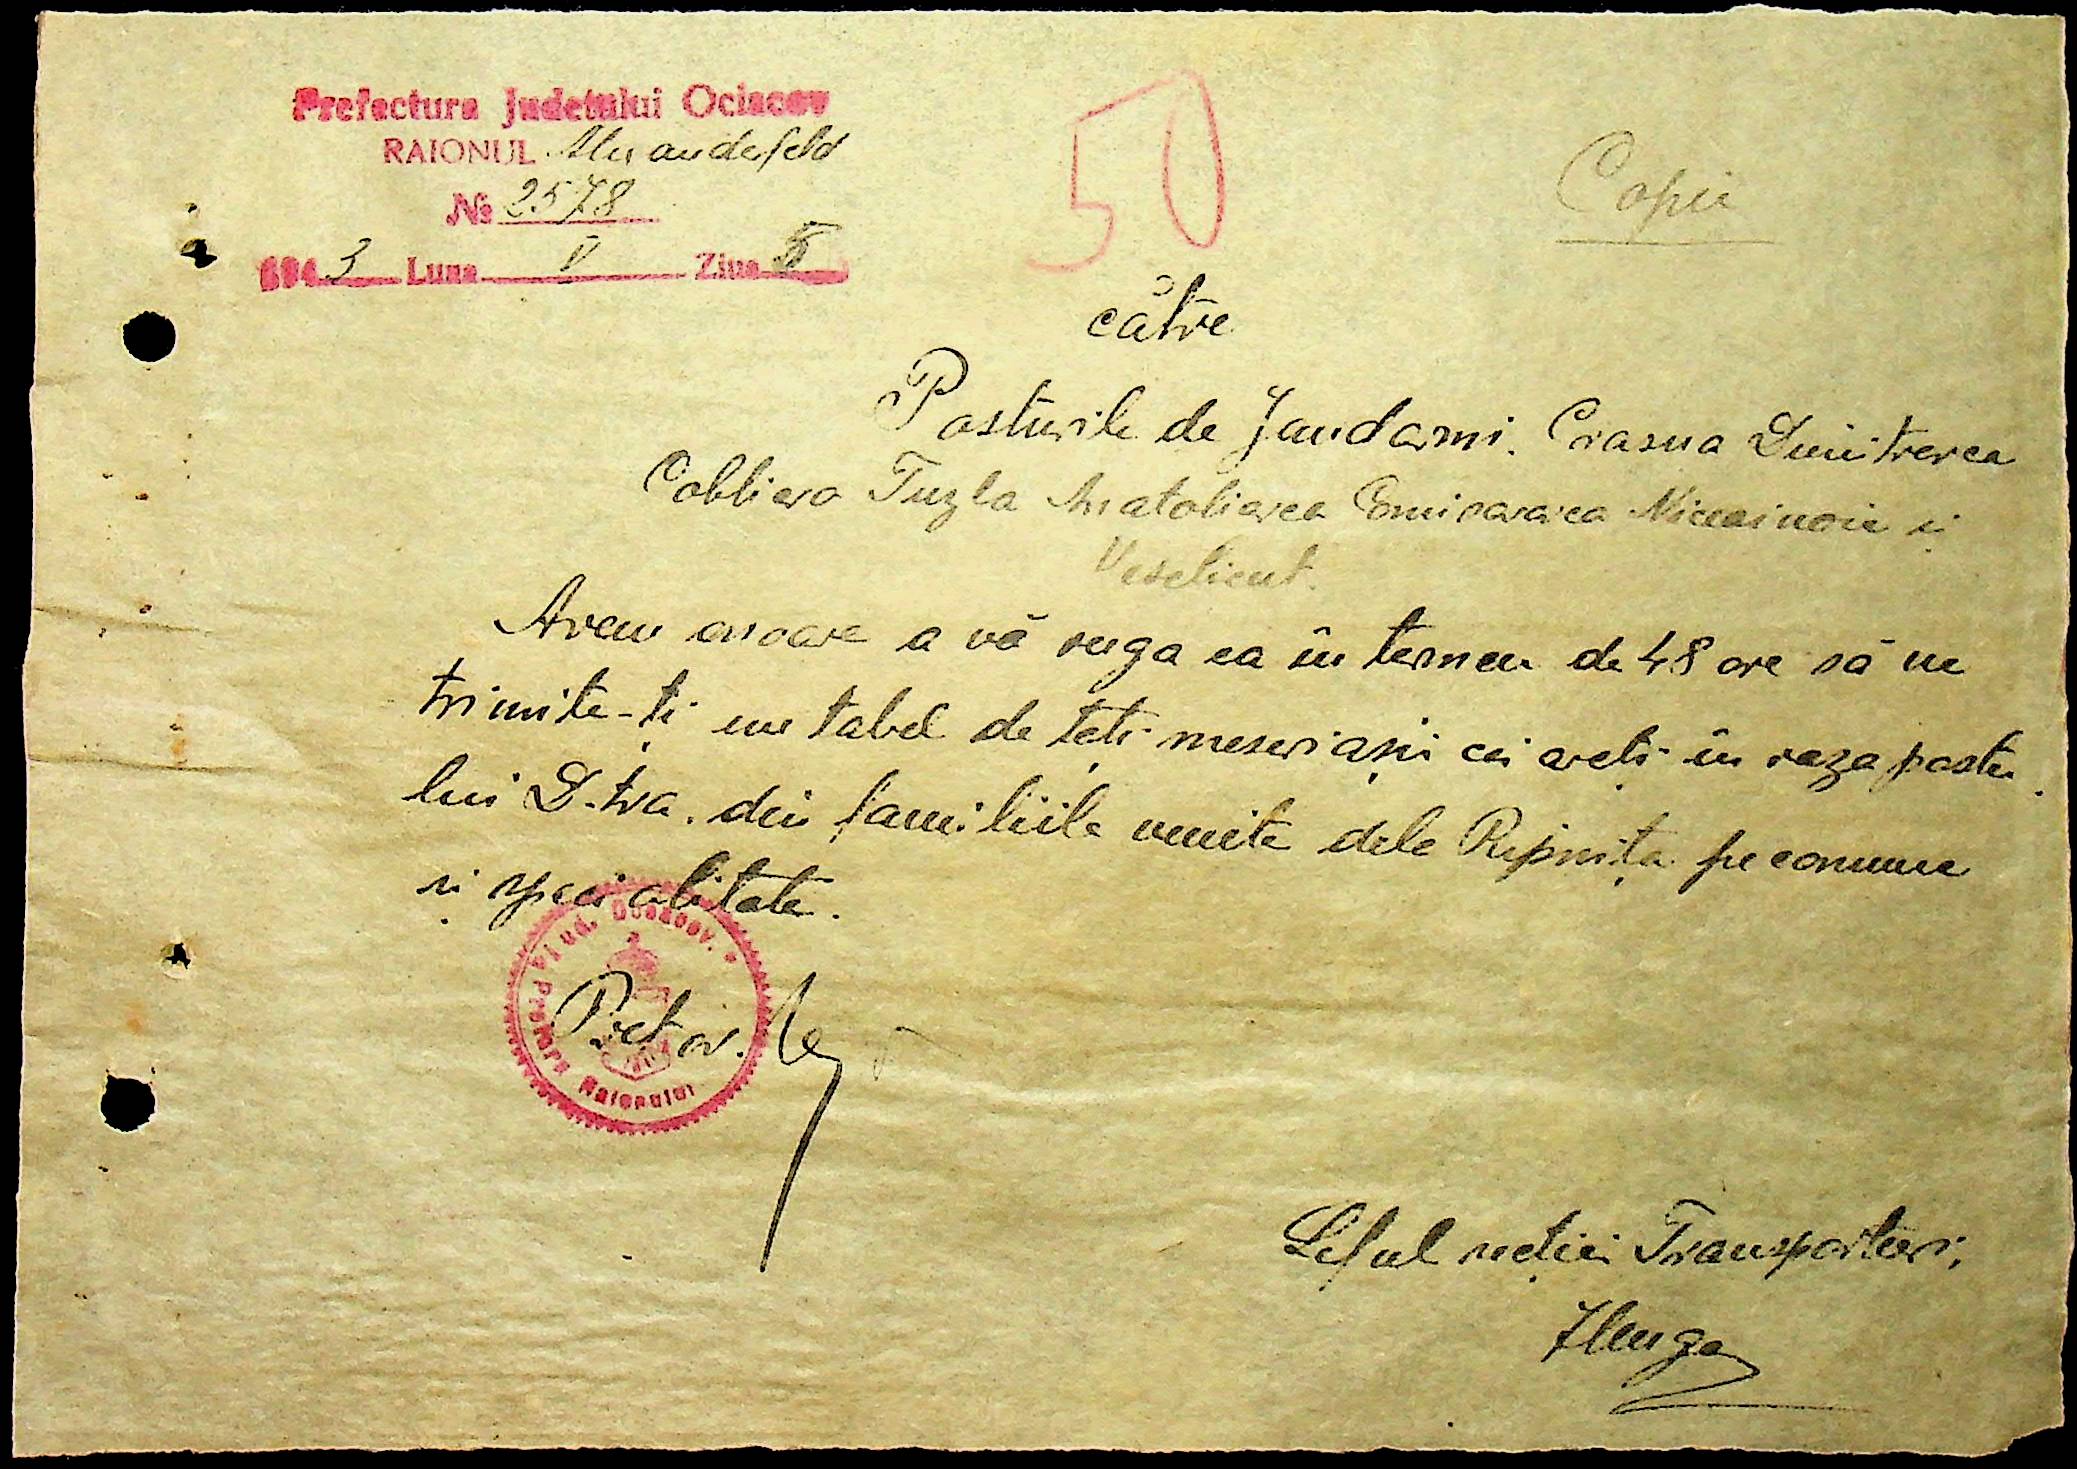 Prefectura Judetului Ociacov
RAIONUL Alexanderfeld
№ 2578
1943 Luna V Ziua
50
Copie
către
Posturile de Jandarmi. Crasna Dimitrevca
Cobliera Tuzla Anatolievca și
Veselicut.
Avem onoare a vă ruga ca în termen de 48 ore să ne
trimite-ți un tabel de toți meseriașii ce aveți în raza postu
lui D-tra. din familiile venite dela Râpnița pe comune
și specialitate.
Jud. Oceacov. * Pretura Raionului
Pretor.
Șeful secției Transporturi,